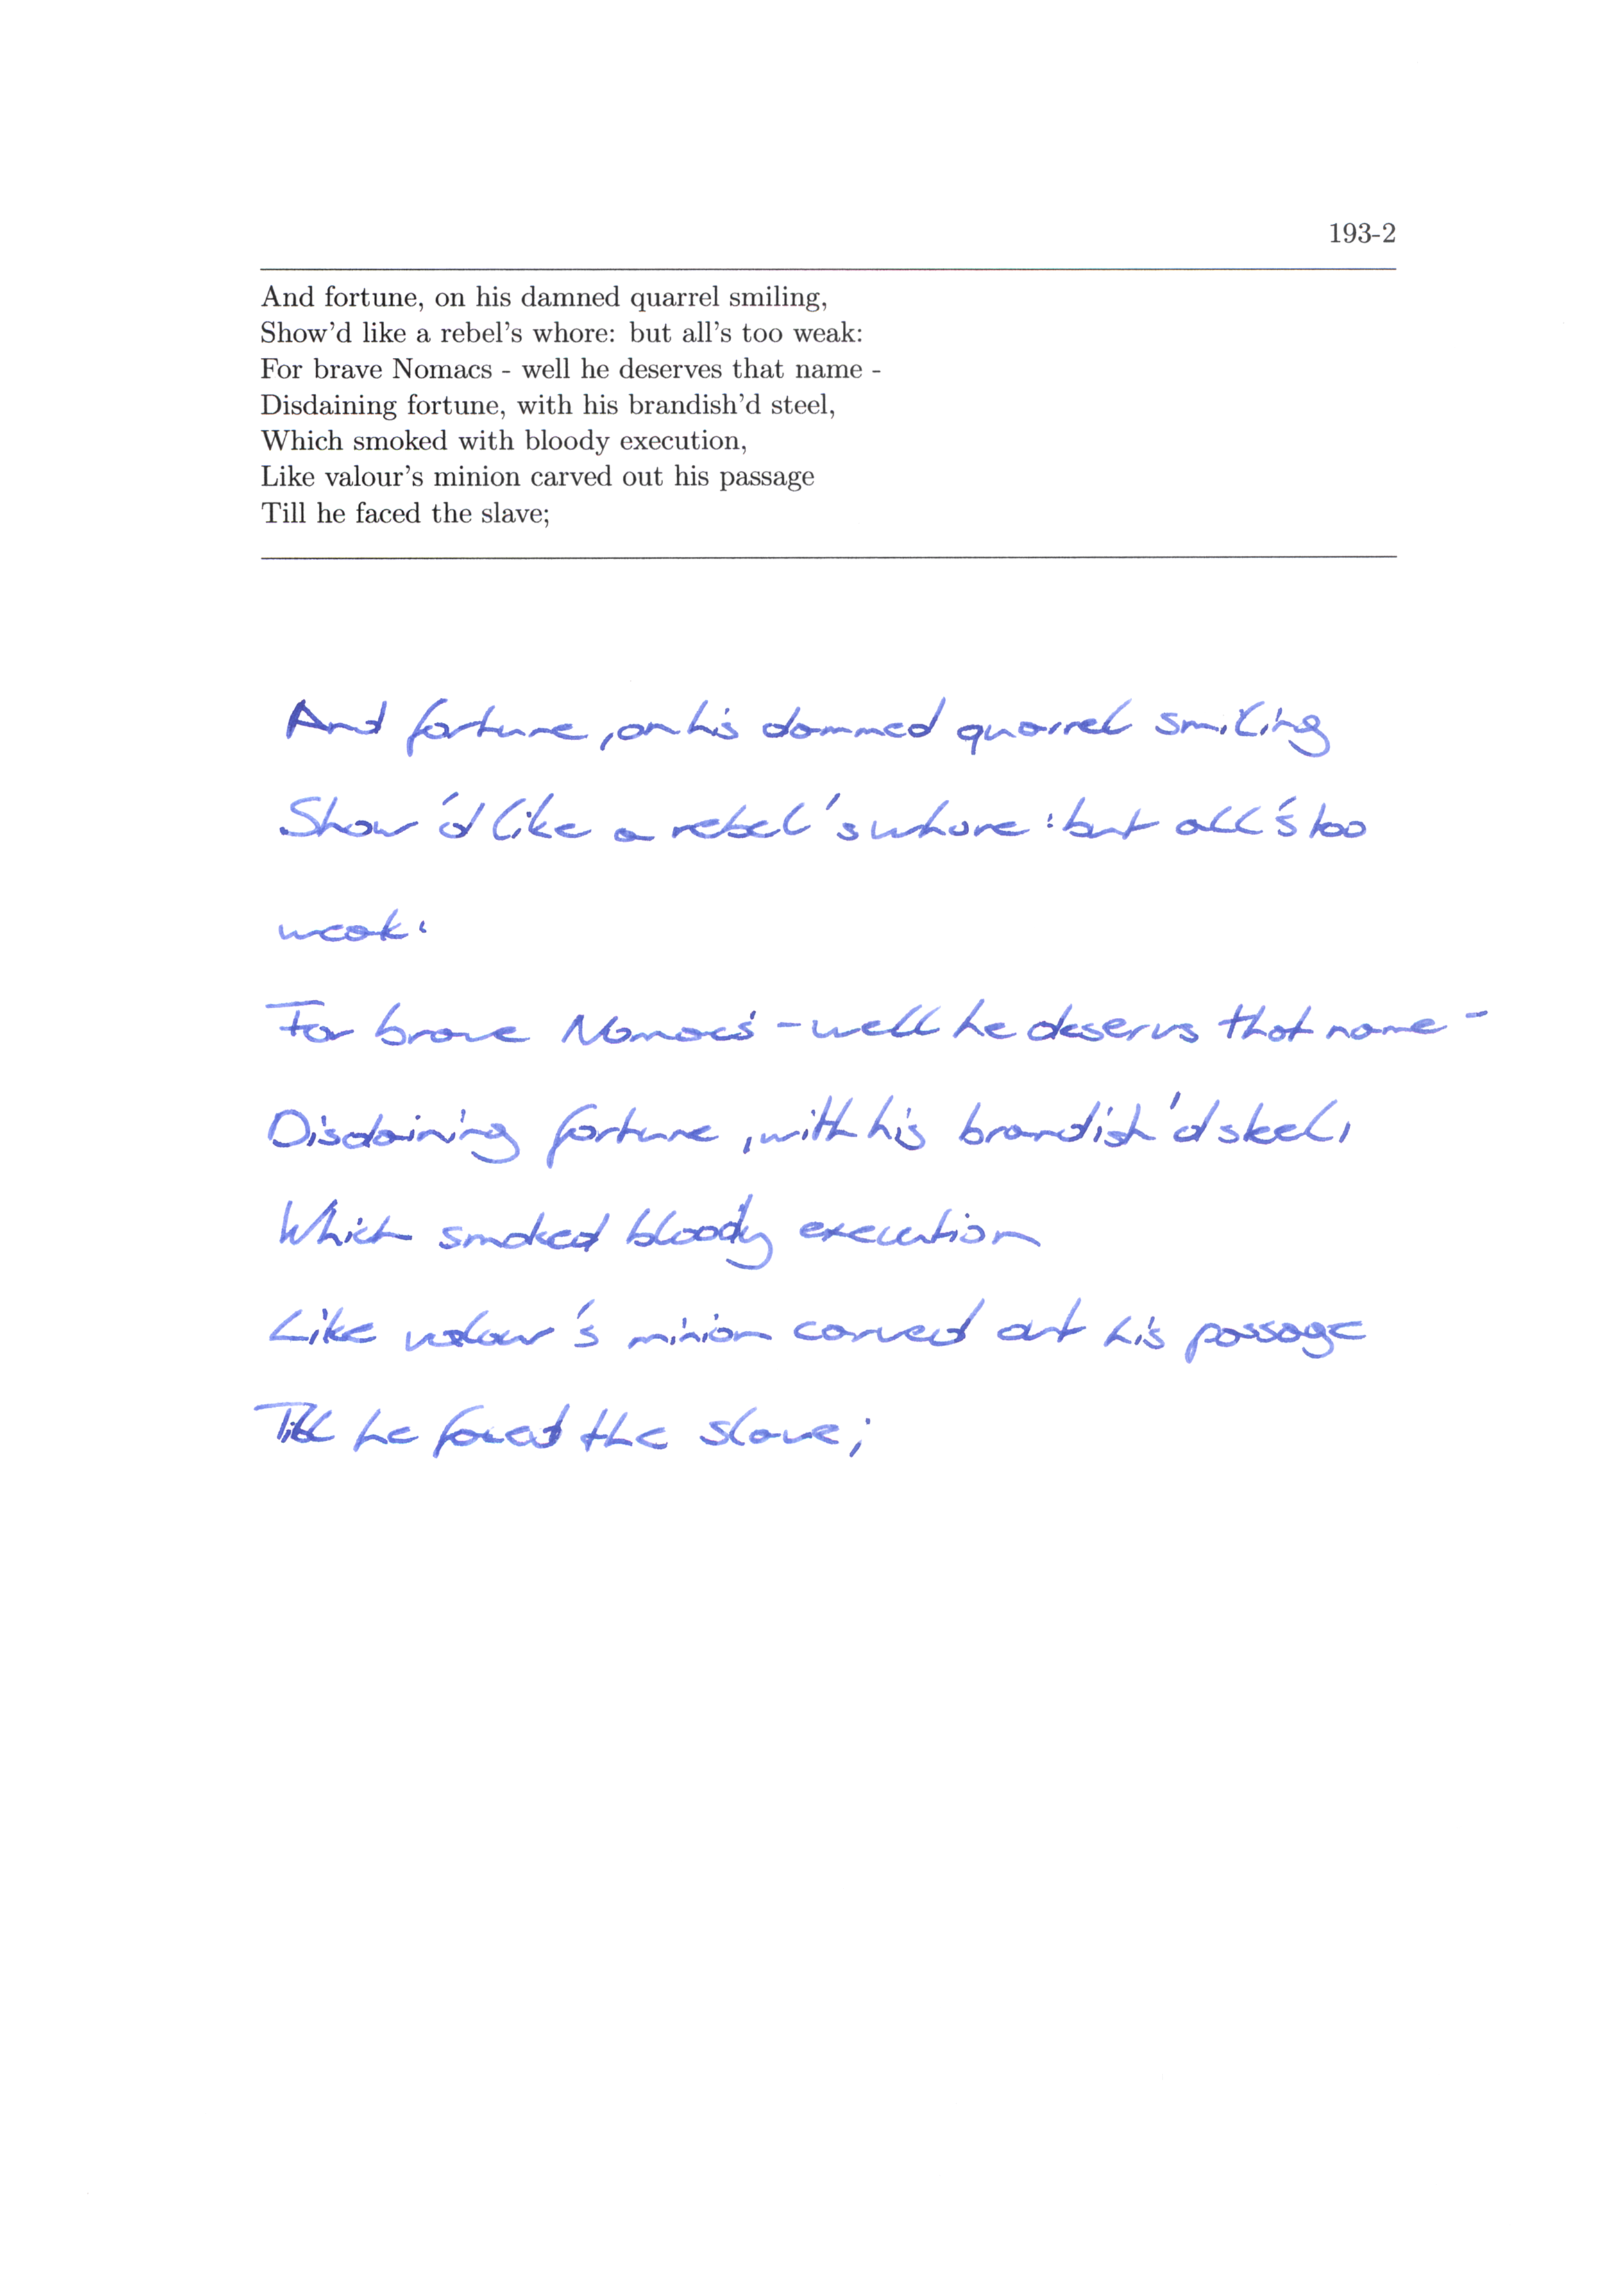 193-2
And fortune, on his damned quarrel smiling,
Show'd like a rebel's whore: but all's too weak:
For brave Nomacs - well he deserves that name -
Disdaining fortune, with his brandish'd steel,
Which smoked with bloody execution,
Like valour's minion carved out his passage
Till he faced the slave;
And fortune, on his dammed quarrel smiling
Show'd like a rebel's whore : but all's too
weak:
For brave Nomacs - well he deservs that name -
Disdaining fortune, with his brandish'd steel,
Which smoked bloody execution
Like valour's minion carved out his passage
Till he faced the slave;